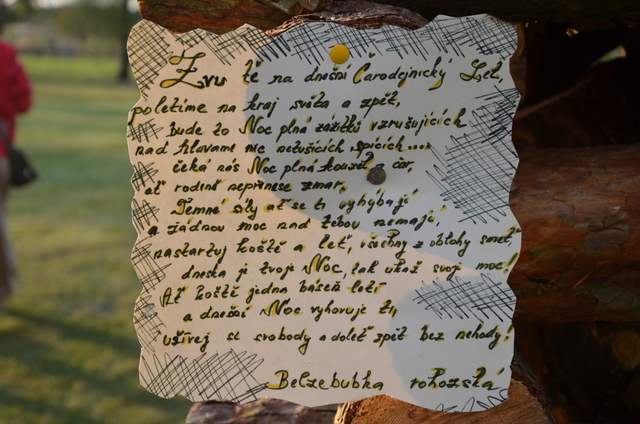 Zvu tě na dnešní Čarodejnický Let,
poletíme na kraj světa a zpět,
bude to Noc plná zážitků vzrušujících
nad hlavami nic netušících spících....
čeká nás Noc plná kouzel a čar,
ať rodině nepřinese zmar,
Temné síly ať se ti vyhýbají
a žádnou moc nad tebou nemají,
nastartuj koště a leť, všechny z oblohy smeť,
dneska je tvoje Noc, tak ukaž svoji moc!
Ať koště jedna báseň letí
a dnešní Noc vyhovuje ti,
užívej si svobody a doleť zpět bez nehody!
Belzebubka rohozská